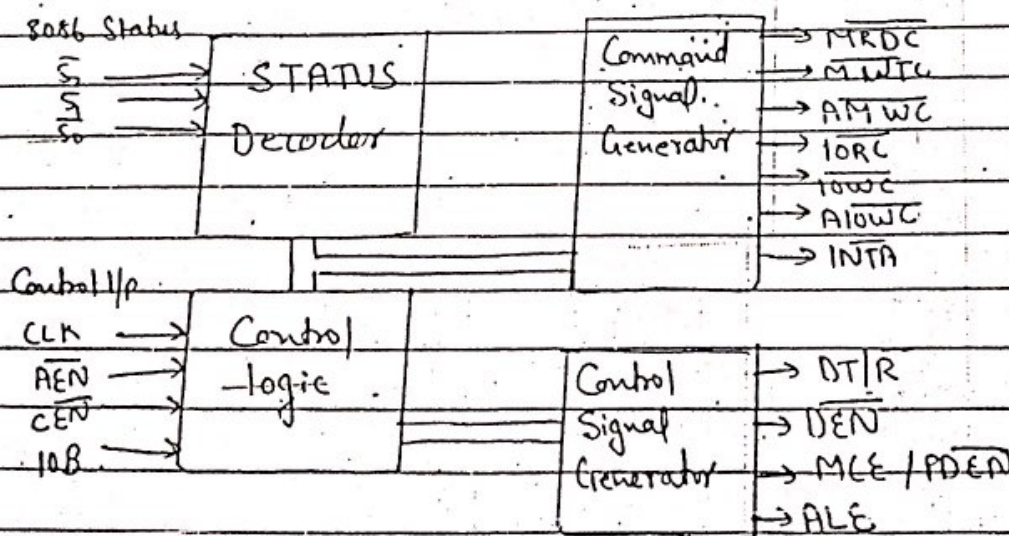 8086 Status
S̅
S̅
S̅0
STATUS
Decoder
Command
Signal.
Generator
M̅R̅D̅C̅
M̅W̅T̅C̅
A̅M̅W̅C̅
I̅O̅R̅C̅
I̅O̅W̅C̅
A̅I̅O̅W̅C̅
IN̅T̅A̅
Control I/p
CLK
A̅E̅N̅
CE̅N̅
IOB
Control
-logic
Control
Signal
Generator
DT/R
D̅E̅N̅
MCE / PD̅E̅N̅
ALE